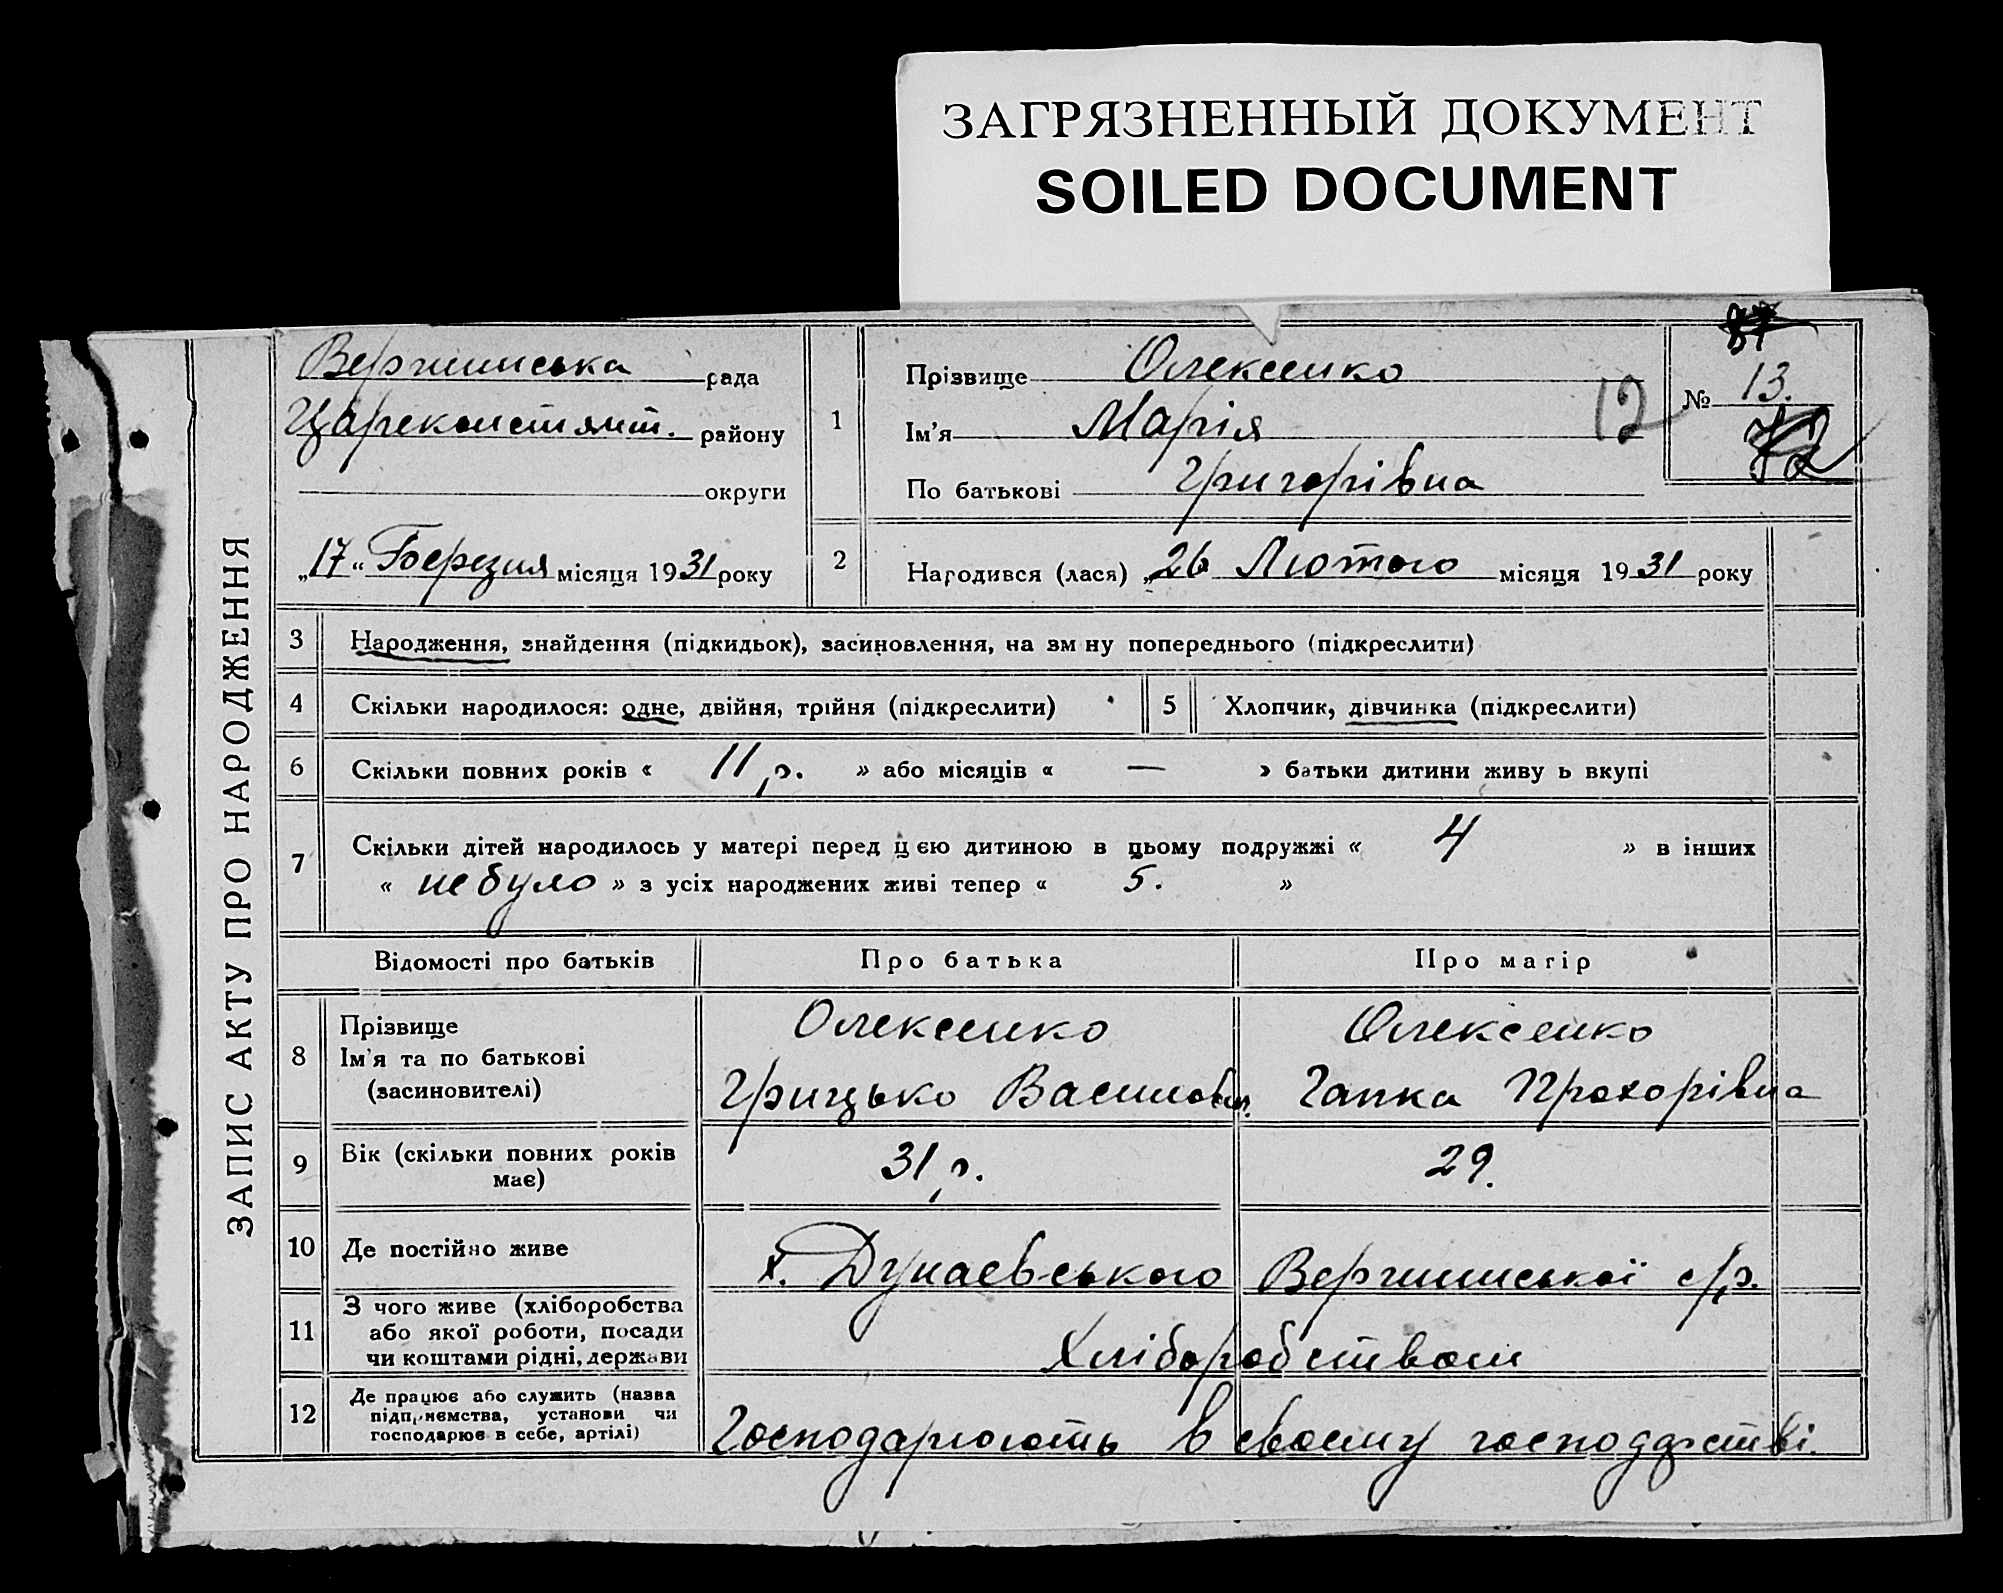 ЗАГРЯЗНЕННЫЙ ДОКУМЕНТ
SOILED DOCUMENT
ЗАПИС АКТУ ПРО НАРОДЖЕННЯ
Вержинська рада
Цареконстянт. району
округи
„17“ Березня місяця 1931 року
1
Прізвище Олексенко
Ім'я Марія
По батькові Григорівна
12
№ 13.
72
2 Народився (лася) „26 Лютого місяця 1931 року
3 Народження, знайдення (підкидьок), засиновлення, на зм ну попереднього (підкреслити)
4 Скільки народилося: одне, двійня, трійня (підкреслити) 5 Хлопчик, дівчинка (підкреслити)
6 Скільки повних років « 11 р. » або місяців « — » батьки дитини живу ь вкупі
7 Скільки дітей народилось у матері перед цєю дитиною в цьому подружжі « 4 » в інших
« не було » з усіх народжених живі тепер « 5. »
Відомості про батьків Про батька Про матір
8 Прізвище Ім'я та по батькові (засиновителі)
Олексенко Олексенко
Грицько Василович. Гапка Прохорівна
9 Вік (скільки повних років має) 31 р. 29.
10 Де постійно живе х. Дунаєвського Вержинської с/р.
11 З чого живе (хліборобства
або якої роботи, посади
чи коштами рідні, держави
Хліборобством
12 Де працює або служить (назва
підприємства, установи чи
господарює в себе, артілі)
Господарюють в своєму господарстві.